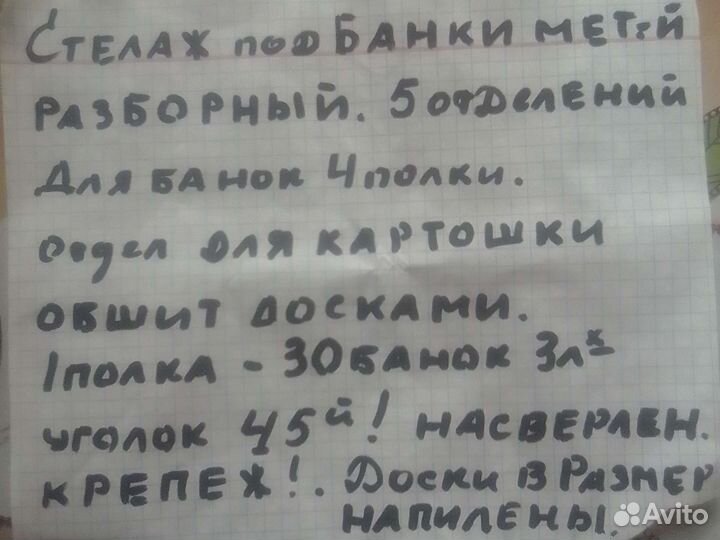 СТЕЛАЖ ПОД БАНКИ МЕТ-Й
РАЗБОРНЫЙ. 5 ОТДЕЛЕНИЙ
ДЛЯ БАНОК 4 ПОЛКИ.
ОТДЕЛ ДЛЯ КАРТОШКИ
ОБШИТ ДОСКАМИ.
1 ПОЛКА - 30 БАНОК 3Л Х
УГОЛОК 45Й! НАСВЕРЛЕН.
КРЕПЕЖ!. ДОСКИ В РАЗМЕР
НАПИЛЕНЫ.
Avito